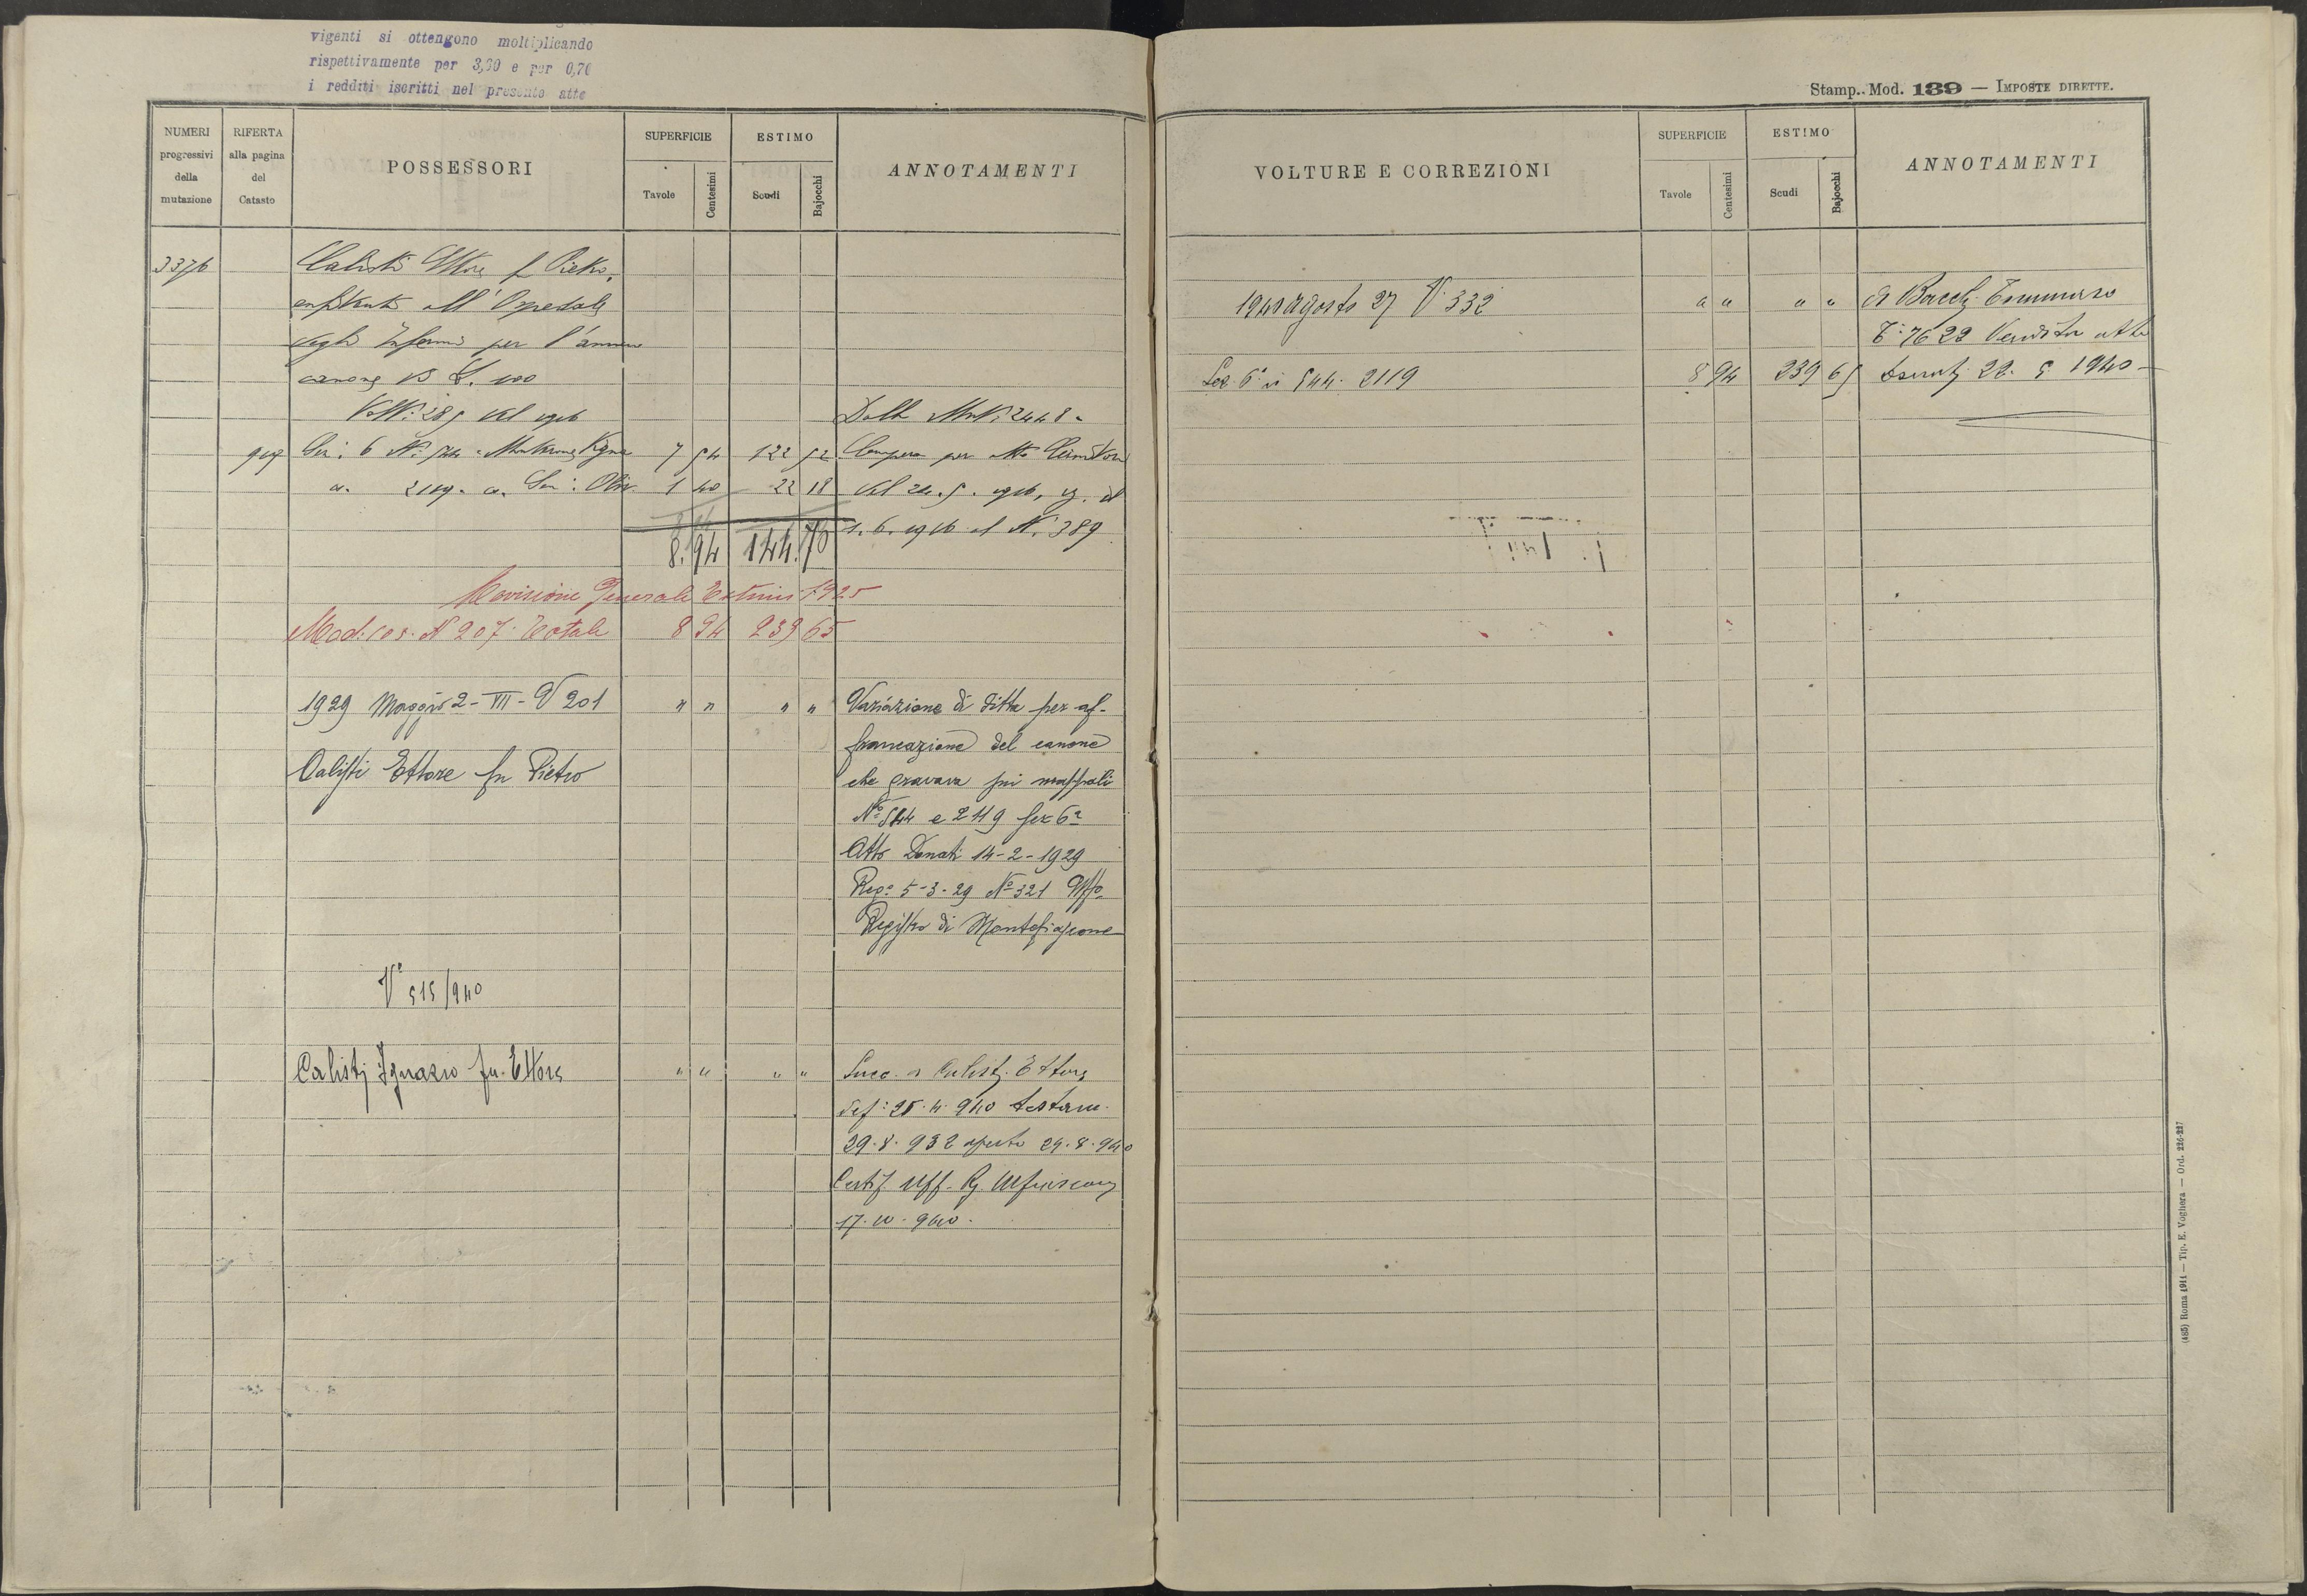 vigenti si ottengono moltiplicando
rispettivamente per 3,30 e per 0,70
i redditi iscritti nel presente atto
NUMERI progressivi della mutazione
RIFERTA alla pagina del Catasto
POSSESSORI
SUPERFICIE
Tavole
Centesimi
ESTIMO
Scudi
Bajocchi
ANNOTAMENTI
3376 Calisti Ettore f Pietro,
enfiteuta all'Ospedale
degli Infermi per l'annuo
canone di L. 100
Volt: 285 del 1916 Dalla Mut: 2448
Sez: 6 Nº 544 Vigna 7 54 122 52 Compera per atto
2119 Oliv. 1 40 22 18 del 24.5.1916,
8.94 144.70 1.6.1916 al N. 389
Revisione Generale Estimi 1925
Mod. 105. N 207. Totale 8 94 239 65
1929 Maggio 2 - VII - V 201 " " " " Variazione di ditta per af-
francazione del canone
Calisti Ettore fu Pietro che gravava sui mappali
Nº 544 e 2119 sez 6ª
Atto Donati 14-2-1929
Regº 5-3-29 Nº 321 Uffº
Registro di Montefiascone
Vª 515/940
Calisti Ignazio fu Ettore " " " " Succ. a Calisti Ettore
def: 25.4.940 testam.
29.8.932 aperto 29.8.940
Certif. Uff. Rg.
17.10.940.
Stamp. Mod. 139 — IMPOSTE DIRETTE.
VOLTURE E CORREZIONI
SUPERFICIE
Tavole
Centesimi
ESTIMO
Scudi
Bajocchi
ANNOTAMENTI
Agosto 27 V 332 " " " " A Tommaso
Vendita atto
Sez. 6ª n 544. 2119 8 94 239 65 22. 5. 1940
(485) Roma 1914 — Tip. E. Voghera — Ord. 226-227